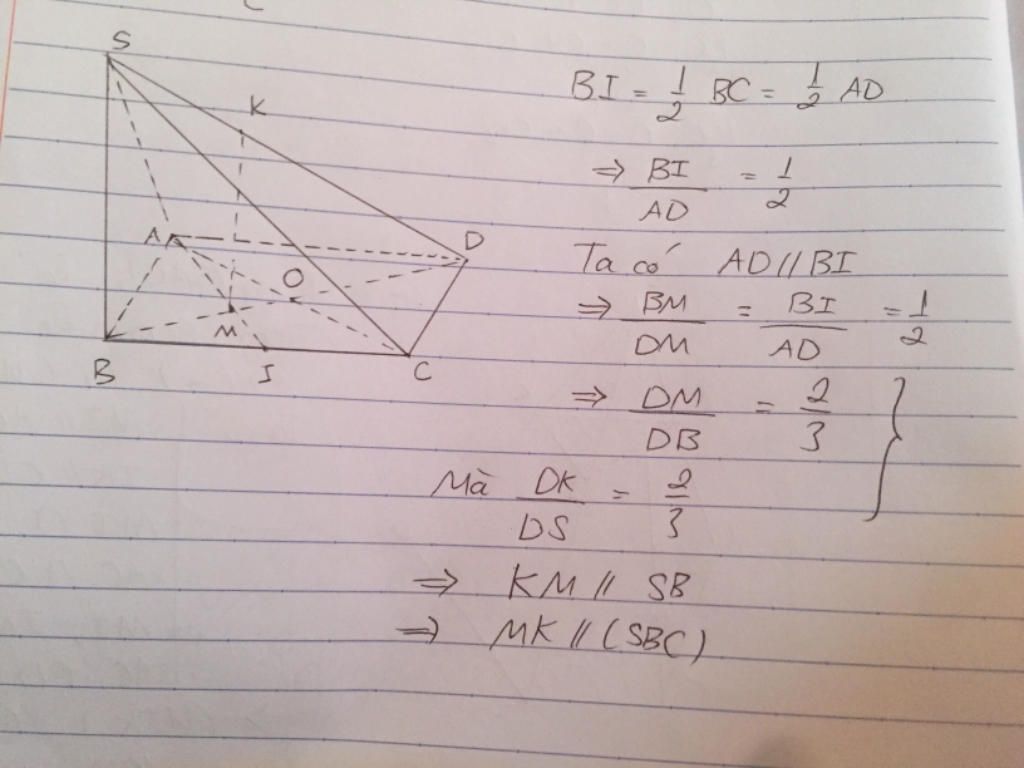 S
K
A
D
O
M
B
I
C
BI = 1/2 BC = 1/2 AD
⇒ BI/AD = 1/2
Ta có AD // BI
⇒ BM/DM = BI/AD = 1/2
⇒ DM/DB = 2/3 }
Mà DK/DS = 2/3
⇒ KM // SB
⇒ MK // (SBC)